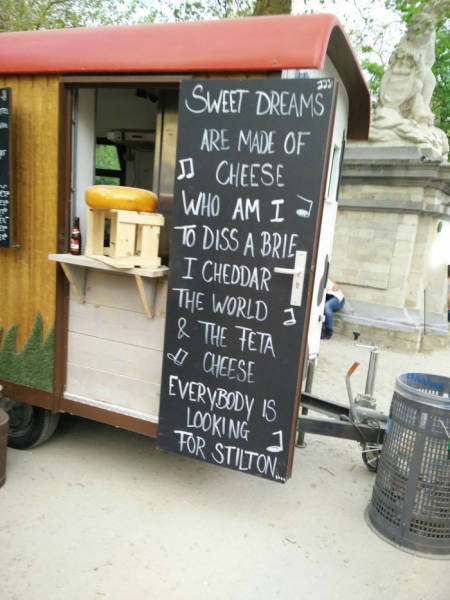 SWEET DREAMS
ARE MADE OF
CHEESE
WHO AM I
TO DISS A BRIE
I CHEDDAR
THE WORLD
& THE FETA
CHEESE
EVERYBODY IS
LOOKING
FOR STILTON...